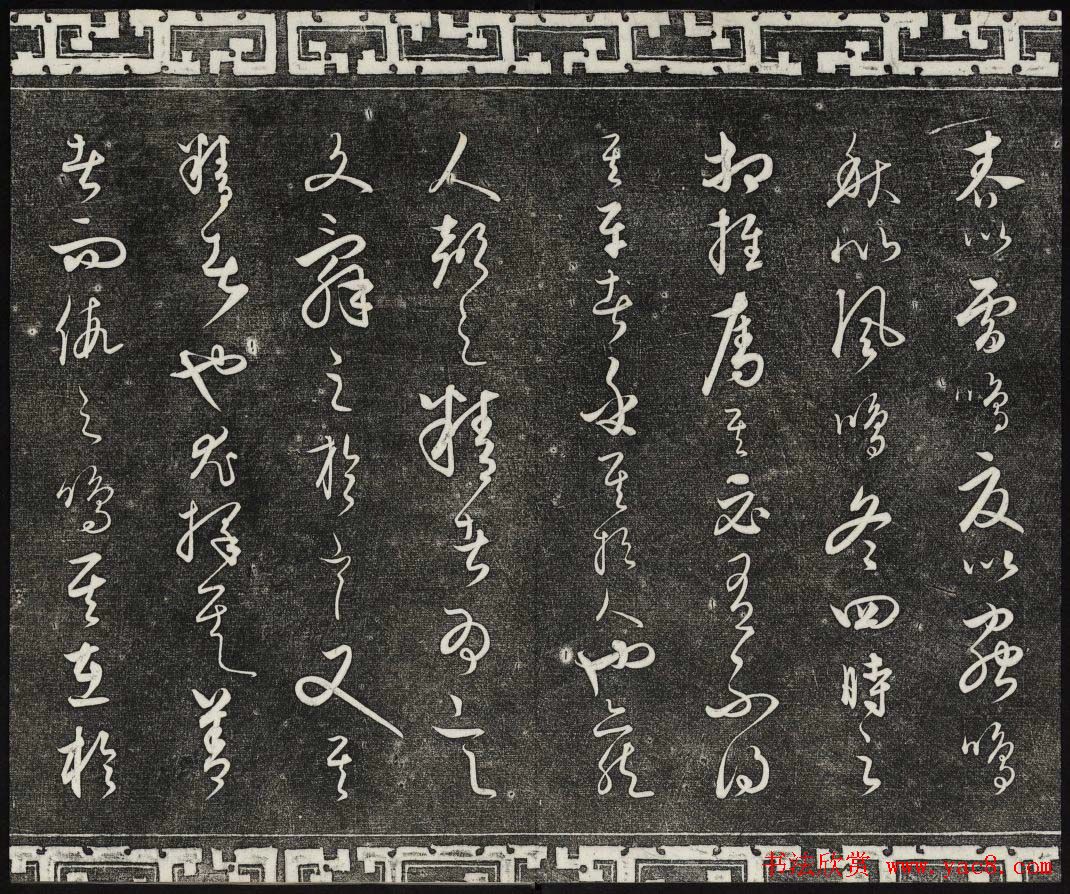 春以雷鳴夏以蟲鳴
秋以風鳴冬四時之
相推奪其必有不得
其平者乎其於人也亦然
人聲之精者為言
文辭之於言又其
精者也尤擇其善
者而假之鳴其在於
书法欣赏 www.yac8.com